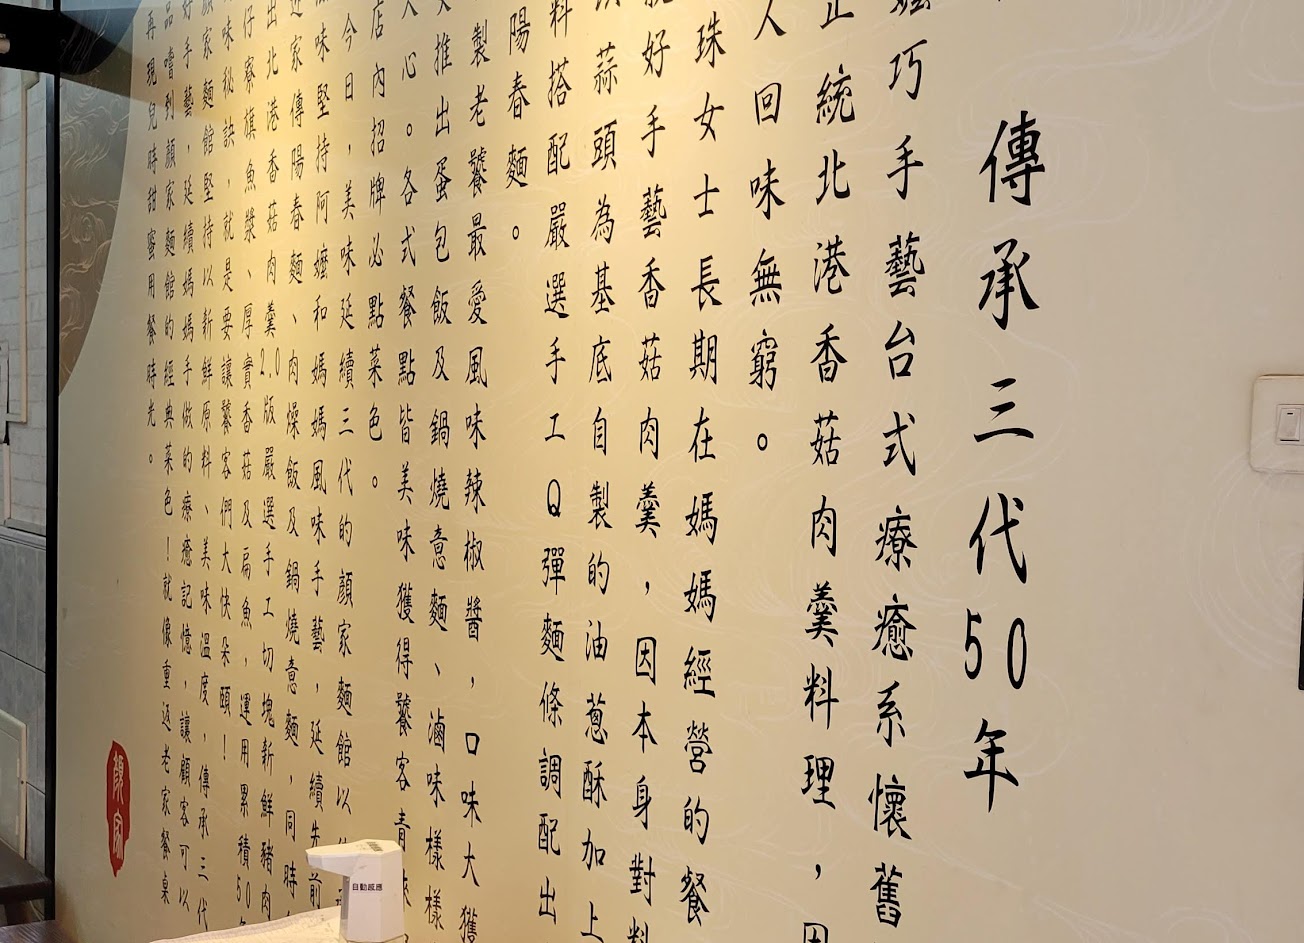 傳承三代50年
巧手藝台式療癒系懷舊
統北港香菇肉羹料理，因
人回味無窮。
珠女士長期在媽媽經營的餐
好手藝香菇肉羹，因本身對料
蒜頭為基底自製的油蔥酥加上
料搭配嚴選手工Q彈麵條調配出
陽春麵。
製老饕最愛風味辣椒醬，口味大獲
推出蛋包飯及鍋燒意麵、滷味樣樣
人心。各式餐點皆美味獲得饕客青睞
店內招牌必點菜色。
今日，美味延續三代的顏家麵館以
味堅持阿嬤和媽媽風味手藝，延續先前
近家傳陽春麵、肉燥飯及鍋燒意麵，同時
出北港香菇肉羹2.0版嚴選手工切塊新鮮豬肉
仔寮旗魚漿、厚實香菇及扁魚，運用累積50年
味秘訣，就是要讓饕客們大快朵頤！
顏家麵館堅持以新鮮原料、美味溫度，傳承三代
好手藝，延續媽媽手做的療癒記憶，讓顧客可以
品嚐到顏家麵館的經典菜色！就像重返老家餐桌
再現兒時甜蜜用餐時光。
顏家
自動感應